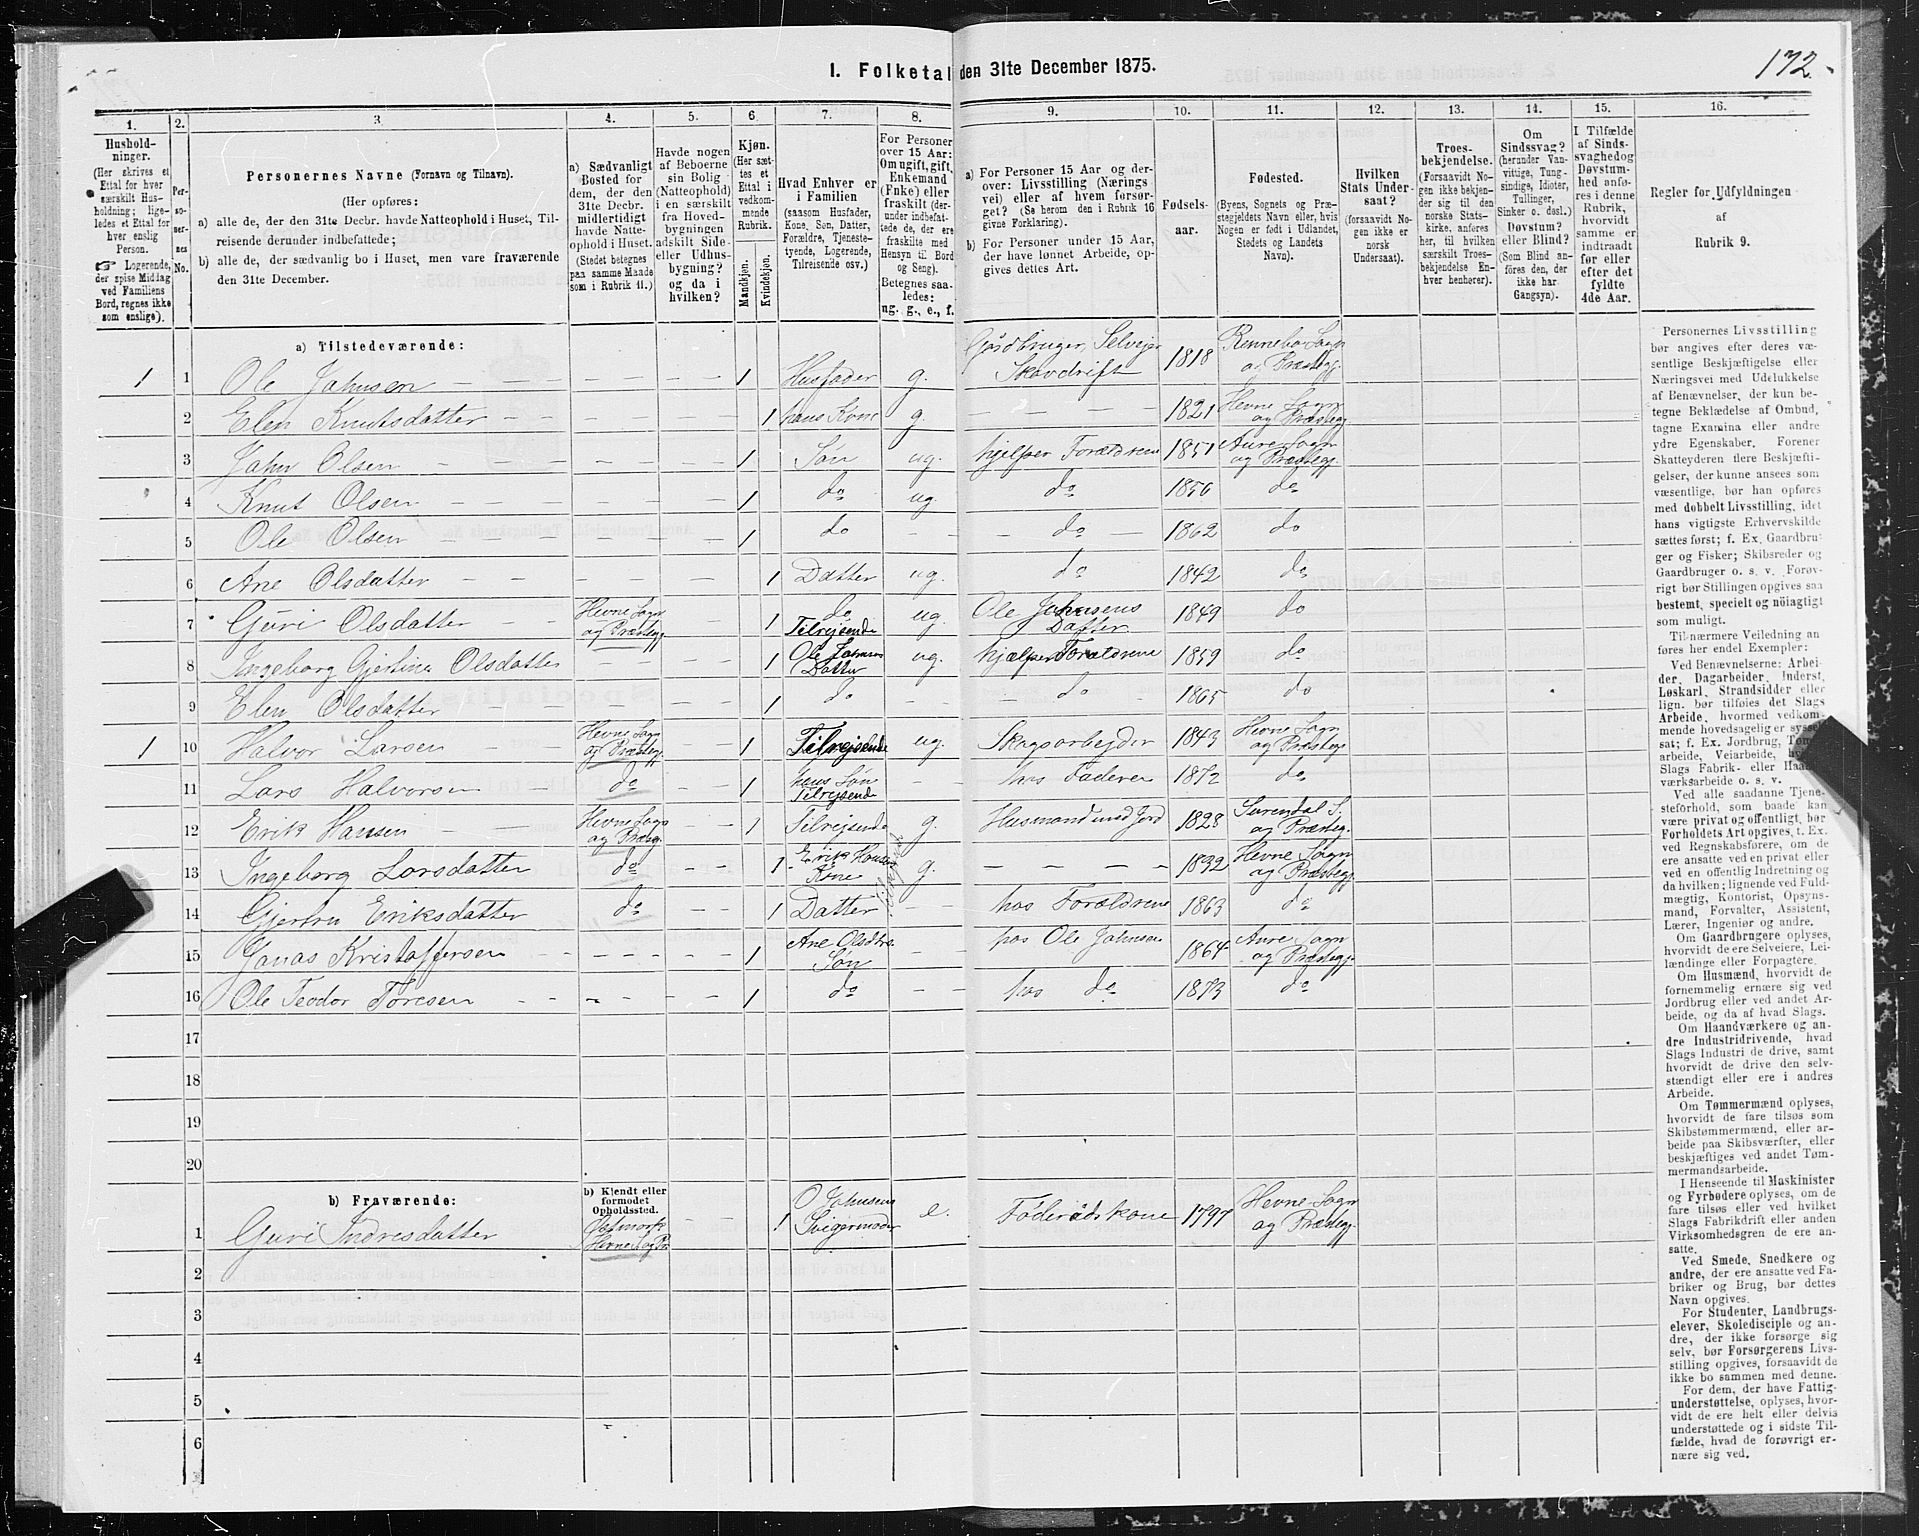 172
I. Folketal den 31te December 1875.
1. 2. 3. 4. 5. 6. 7. 8. 9. 10. 11. 12. 13. 14. 15. 16.
Hushold-
ninger.
(Her skrives et
Ettal for hver
særskilt Hus-
holdning; lige-
ledes et Ettal for
hver enslig
Person.
☞ Logerende,
der spise Middag
ved Familiens
Bord, regnes ikke
som enslige).
Per-
so-
ner-
nes
No.
Personernes Navne (Fornavn og Tilnavn).
(Her opføres:
a) alle de, der den 31te Decbr. havde Natteophold i Huset, Til-
reisende derunder indbefattede;
b) alle de, der sædvanlig bo i Huset, men vare fraværende
den 31te December.
a) Sædvanligt
Bosted for
dem, der den
31te Decbr.
midlertidigt
havde Natte-
ophold i Huset.
(Stedet betegnes
paa samme Maade
som i Rubrik 11.)
Havde nogen
af Beboerne
sin Bolig
(Natteophold)
i en særskilt
fra Hoved-
bygningen
adskilt Side-
eller Udhus-
bygning?
og da i
hvilken?
Kjøn.
(Her sæt-
tes et
Ettal i
vedkom-
mende
Rubrik.
Mandkjøn.
Kvindekjøn.
Hvad Enhver er
i Familien
(saasom Husfader,
Kone, Søn, Datter,
Forældre, Tjeneste-
tyende, Logerende,
Tilreisende osv.)
For Personer
over 15 Aar:
Om ugift, gift,
Enkemand
(Enke) eller
fraskilt (der-
under indbefat-
tede de, der ere
fraskilte med
Hensyn til Bord
og Seng).
Betegnes saa-
ledes:
ug. g., e., f.
a) For Personer 15 Aar og der-
over: Livsstilling (Nærings
vei) eller af hvem forsør-
get? (Se herom den i Rubrik 16
givne Forklaring).
b) For Personer under 15 Aar,
der have lønnet Arbeide, op-
gives dettes Art.
Fødsels-
aar.
Fødested.
(Byens, Sognets og Præ-
stegjeldets Navn eller, hvis
Nogen er født i Udlandet,
Stedets og Landets
Navn).
Hvilken
Stats Under-
saat?
(forsaavidt No-
gen ikke er
norsk
Undersaat).
Troes-
bekjendelse.
(Forsaavidt No-
gen ikke bekjen-
der sig til den
norske Stats-
kirke, anføres
her, til hvilken
særskilt Troes-
bekjendelse En-
hver henhører).
Om
Sindssvag?
(herunder Van-
vittige, Tung-
sindige, Idioter,
Tullinger,
Sinker o. desl.)
Døvstum?
eller Blind?
(Som Blind an-
føres den, der
ikke har
Gangsyn).
I Tilfælde
af Sinds-
svaghed og
Døvstum-
hed anfø-
res i denne
Rubrik,
hvorvidt
samme er
indtraadt
før eller
efter det
fyldte
4de Aar.
Regler for Udfyldningen
af
Rubrik 9.
a) Tilstedeværende:
1 1 Ole Jahnsen 1 Husfader g. Gårdbruger, Selvejer Skovdrift 1818 Rennebo Sogn og Præstegj.
2 Elen Knutsdatter 1 hans Kone g. 1821 Hevne Sogn og Præstegj.
3 Jahn Olsen 1 Søn ug. hjelper Forældrene 1851 Aure Sogn og Præstegj.
4 Knut Olsen 1 do ug. do 1856 do
5 Ole Olsen 1 do do 1862 do
6 Ane Olsdatter 1 Datter ug. do 1842 do
7 Guri Olsdatter Hevne Sogn og Præstegj. 1 do Tilrejsende ug. Ole Jahnsens Datter 1849 do
8 Ingeborg Gjertine Olsdatter 1 Ole Jahnsens Datter ug. hjælper Forældrene 1859 do
9 Elen Olsdatter 1 do do 1865 do
1 10 Halvor Larsen Hevne Sogn og Præstegj. 1 Tilrejsende ug. Skogsarbejder 1843 Hevne Sogn og Præstegj.
11 Lars Halvorsen do 1 hans Søn Tilrejsende hos Faderen 1872 do
12 Erik Hansen Hevne Sogn og Præsteg. 1 Tilrejsende g. Husmand med Jord 1828 Surendal S. og Præsteg.
13 Ingeborg Larsdatter do 1 Erik Hansens Kone g. 1832 Hevne Sogn og Præstegj.
14 Gjertru Eriksdatter do 1 Datter hos Forældrene 1863 do
15 Jonas Kristoffersen 1 Ane Olsdtrs. Søn hos Ole Jahnsen 1864 Aure Sogn og Præstegj.
16 Ole Teodor Toresen 1 do hos do 1873 do
17
18
19
20
b) Fraværende:
b) Kjendt eller
formodet
Opholdssted.
1 Guri Indresdatter Hevne S. og Pr. 1 O Jahnsens Svigermoder e. Føderådskone 1797 Hevne Sogn og Præstegj.
2
3
4
5
6
Personernes Livsstilling
bør angives efter deres væ-
sentlige Beskjæftigelse eller
Næringsvei med Udelukkelse
af Benævnelser, der kun be-
tegne Beklædelse af Ombud,
tagne Examina eller andre
ydre Egenskaber. Forener
Skatteyderen flere Beskjæfti-
gelser, der kunne ansees som
væsentlige, bør han opføres
med dobbelt Livsstilling, idet
hans vigtigste Erhvervskilde
sættes først; f. Ex. Gaardbru-
ger og Fisker; Skibsreder og
Gaardbruger o. s. v. Forøv-
rigt bør Stillingen opgives saa
bestemt, specielt og nøiagtigt
som muligt.
Til nærmere Veiledning an
føres her endel Exempler:
Ved Benævnelserne: Arbei-
der, Dagarbeider, Inderst,
Løskarl, Strandsidder eller
lign. bør tilføies det Slags
Arbeide, hvormed vedkom-
mende hovedsagelig er syssel
sat; f. Ex. Jordbrug, Tømmer-
arbeide, Veiarbeide, hvilket
Slags Fabrik- eller Haand-
værksarbeide o. s. v.
Ved alle saadanne Tjene-
steforhold, som baade kan
være privat og offentligt, bør
Forholdets Art opgives, t. Ex.
ved Regnskabsførere, om de
ere ansatte ved en privat eller
ved en offentlig Indretning og
da hvilken; lignende ved Fuld-
mægtig, Kontorist, Opsyns-
mand, Forvalter, Assistent,
Lærer, Ingeniør og andre.
Om Gaardbrugere oplyses,
hvorvidt de ere Selveiere, Lei-
lændinge eller Forpagtere.
Om Husmænd, hvorvidt de
fornemmelig ernære sig ved
Jordbrug eller ved andet Ar-
beide, og da af hvad Slags.
Om Haandværkere og an-
dre Industridrivende, hvad
Slags Industri de drive, samt
hvorvidt de drive den selv-
stændigt eller ere i andres
Arbeide.
Om Tømmermænd oplyses,
hvorvidt de fare tilsøs som
Skibstømmermænd, eller ar-
beide paa Skibsværfter, eller
beskjæftiges ved andet Tøm-
mermandsarbeide.
I Henseende til Maskinister
og Fyrbødere oplyses, om de
fare tilsøs eller ved hvilket
Slags Fabrikdrift eller anden
Virksomhedsgren de ere an-
satte.
Ved Smede, Snedkere og
andre, der ere ansatte ved Fa-
briker og Brug, bør dettes
Navn opgives.
For Studenter, Landbrugs-
elever, Skoledisciple og an-
dre, der ikke forsørge sig
selv, bør Forsørgerens Livs-
stilling opgives, forsaavidt de
ikke bo sammen med denne.
For dem, der have Fattig-
understøttelse, oplyses, hvor-
vidt de ere helt eller delvis
understøttede og i sidste Til-
fælde, hvad de forøvrigt er-
nære sig ved.